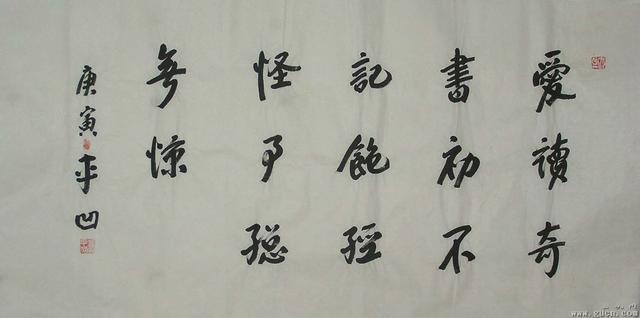 愛讀奇
書初不
記飽經
怪事總
無驚
庚寅平凹
www.gucn.com